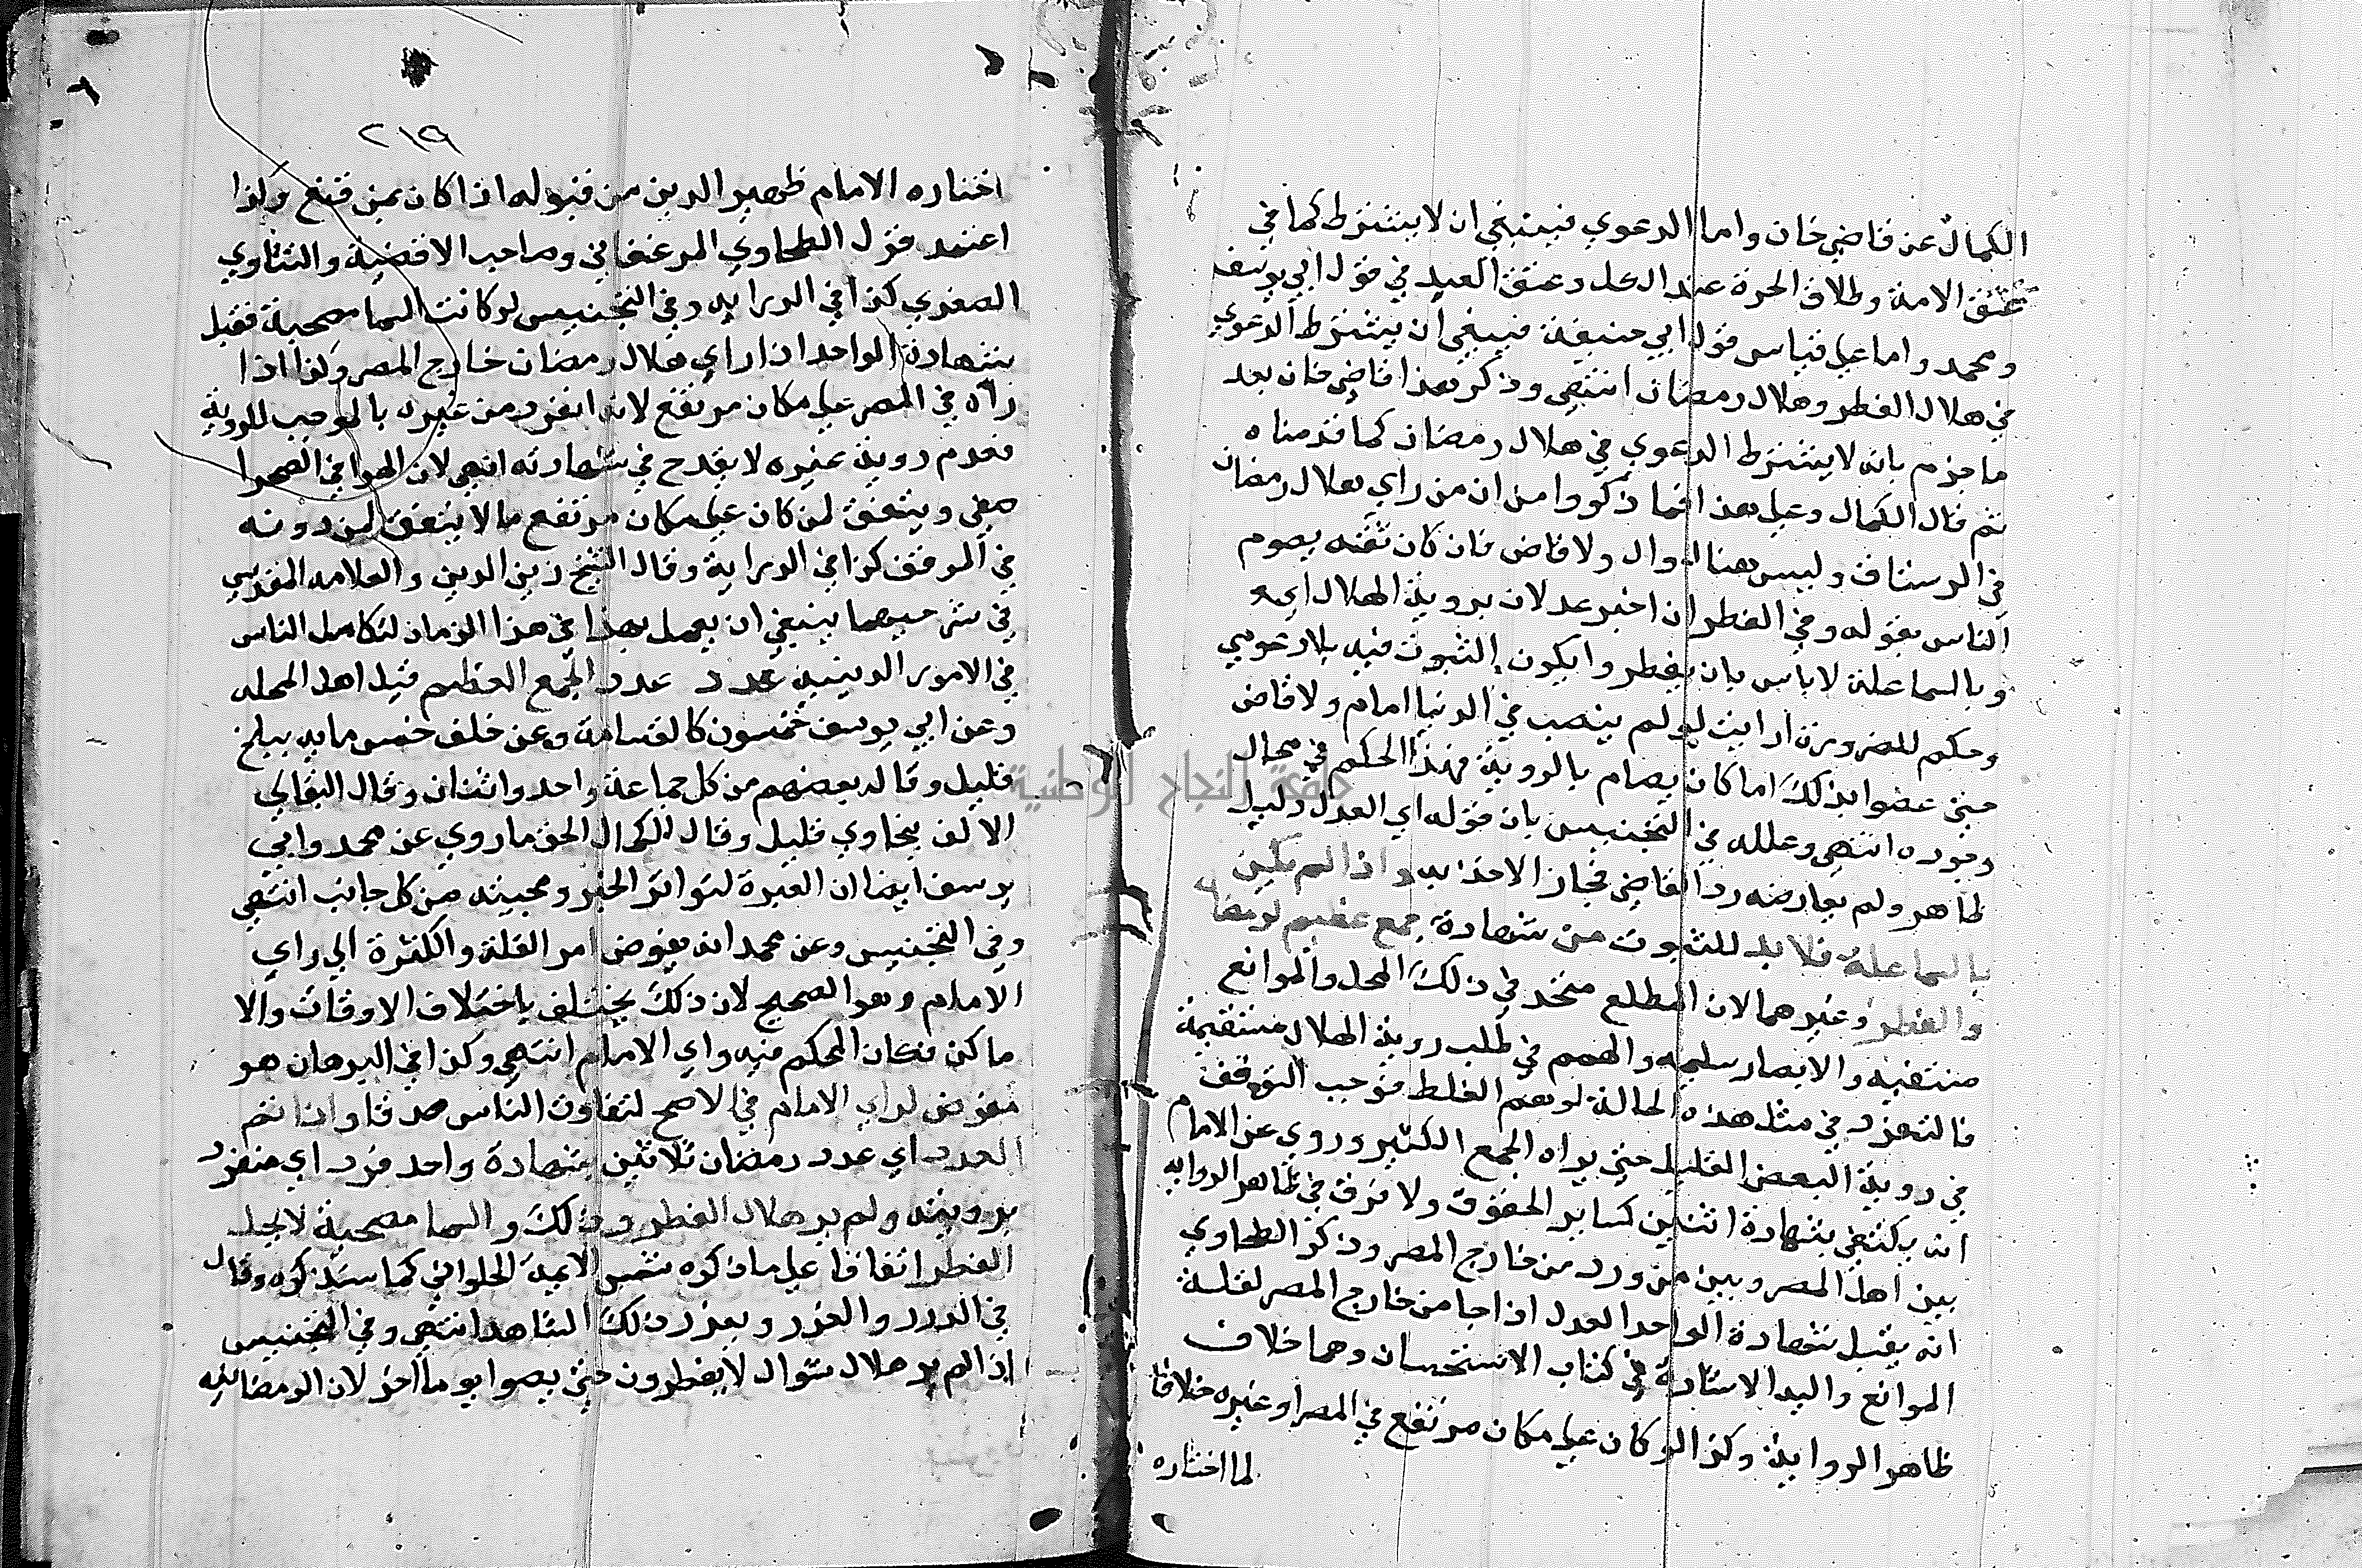 الكمال عن قاضي خان واما الدعوي فينبغي ان لا يشترط كما في
عتق الامة وطلاق الحرة عند الكل وعتق العبد في قول ابي يوسف
ومحمد واما علي قياس قول ابي حنيفة فينبغي ان يشترط الدعوي
في هلال الفطر وهلال رمضان انتهي وذكر هذا قاضي خان بعد
ما جزم بانه لا يشترط الدعوي في هلال رمضان كما قدمناه
ثم قال الكمال وعلي هذا فما ذكروا من ان من راي هلال رمضان
في الرستاق وليس هناك وال ولا قاض فان كان ثقة يصوم
الناس بقوله وفي الفطر ان اخبر عدلان بروية الهلال اي
وبالسما علة لا باس بان يفطروا يكون الثبوت فيه بلا دعوي
وحكم للضرورة ارايت لو لم ينصب في الدنيا امام ولا قاض
حتي عصوا بذلك اما كان يصام بالروية فهذا الحكم في محال
وجوده انتهي وعلله في التجنيس بان قوله اي العدل دليل
ظاهر ولم يعارضه رد القاضي فجاز الاخذ به واذا لم يكن
بالسما علة فلا بد للثبوت من شهادة جمع عظيم لرمضان
والفطر وغيرهما لان المطلع متحد في ذلك المحل والموانع
منتفيه والابصار سليمه والهمم في طلب روية الهلال مستقيمة
فالتفرد في مثل هذه الحالة توهم الغلط فوجب التوقف
في روية البعض القليل حتي يراه الجمع الكثير وروي عن الامام
انه يكتفي بشهادة اثنين كساير الحقوق ولا فرق في ظاهر الروايه
بين اهل المصر وبين من ورد من خارج المصر وذكر الطحاوي
انه يقبل شهادة الواحد العدل اذا جا من خارج المصر لقلة
الموانع واليه الاشارة في كتاب الاستحسان وهما خلاف
ظاهر الرواية وكذا لو كان علي مكان مرتفع في المصر او غيره خلافا
لما اختاره
٢١٩
اختاره الامام ظهير الدين من قبوله اذا كان بمرتفع ولذا
اعتمد قول الطحاوي المرغيناني وصاحب الاقضية والفتاوي
الصغري كذا في الدرايه وفي التجنيس لو كانت السما مصحية تقبل
شهادة الواحد اذا راي هلال رمضان خارج المصر وكذا اذا
رآه في المصر علي مكان مرتفع لانه انفرد من غيره بالموجب للروية
فعدم روية غيره لا يقدح في شهادته انتهي لان الهوا في الصحرا
صفي ويتفق لمن كان علي مكان مرتفع ما لا يتفق لمن دونه
في الموقف كذا في الدراية وقال الشيخ زين الدين والعلامه المقدسي
في شرحيهما ينبغي ان يعمل بهذا في هذا الزمان لتكاسل الناس
في الامور الدينيه عدد عدد الجمع العظيم قيل اهل المحله
وعن ابي يوسف خمسون كالقسامة وعن خلف خمس مايه ببلخ
قليل وقال بعضهم من كل جماعة واحد واثنان وقال البقالي
الالف ببخاري قليل وقال الكمال الحق ما روي عن محمد وابي
يوسف ايضا ان العبرة لتواتر الخبر ومجيئه من كل جانب انتهي
وفي التجنيس وعن محمد انه يفوض امر القلة والكثرة الي راي
الامام وهو الصحيح لان ذلك يختلف باختلاف الاوقات والا
ماكن فكان المحكم فيه راي الامام انتهي وكذا في البرهان هو
مفوض لراي الامام في الاصح لتفاوت الناس صدقا واذا تم
العدد اي عدد رمضان ثلاثين بشهادة واحد فرد اي منفرد
برويته ولم ير هلال الفطر وذلك والسما مصحية لا يحل
الفطر اتفاقا علي ما ذكره شمس الايمة الحلواني كما سنذكره وقال
في الدرر والغرر ويعزر ذلك الشاهد انتهي وفي التجنيس
اذا لم ير هلال شوال لا يفطرون حتي يصوموا يوما اخر لان الرمضانيه
جامعة النجاح الوطنية